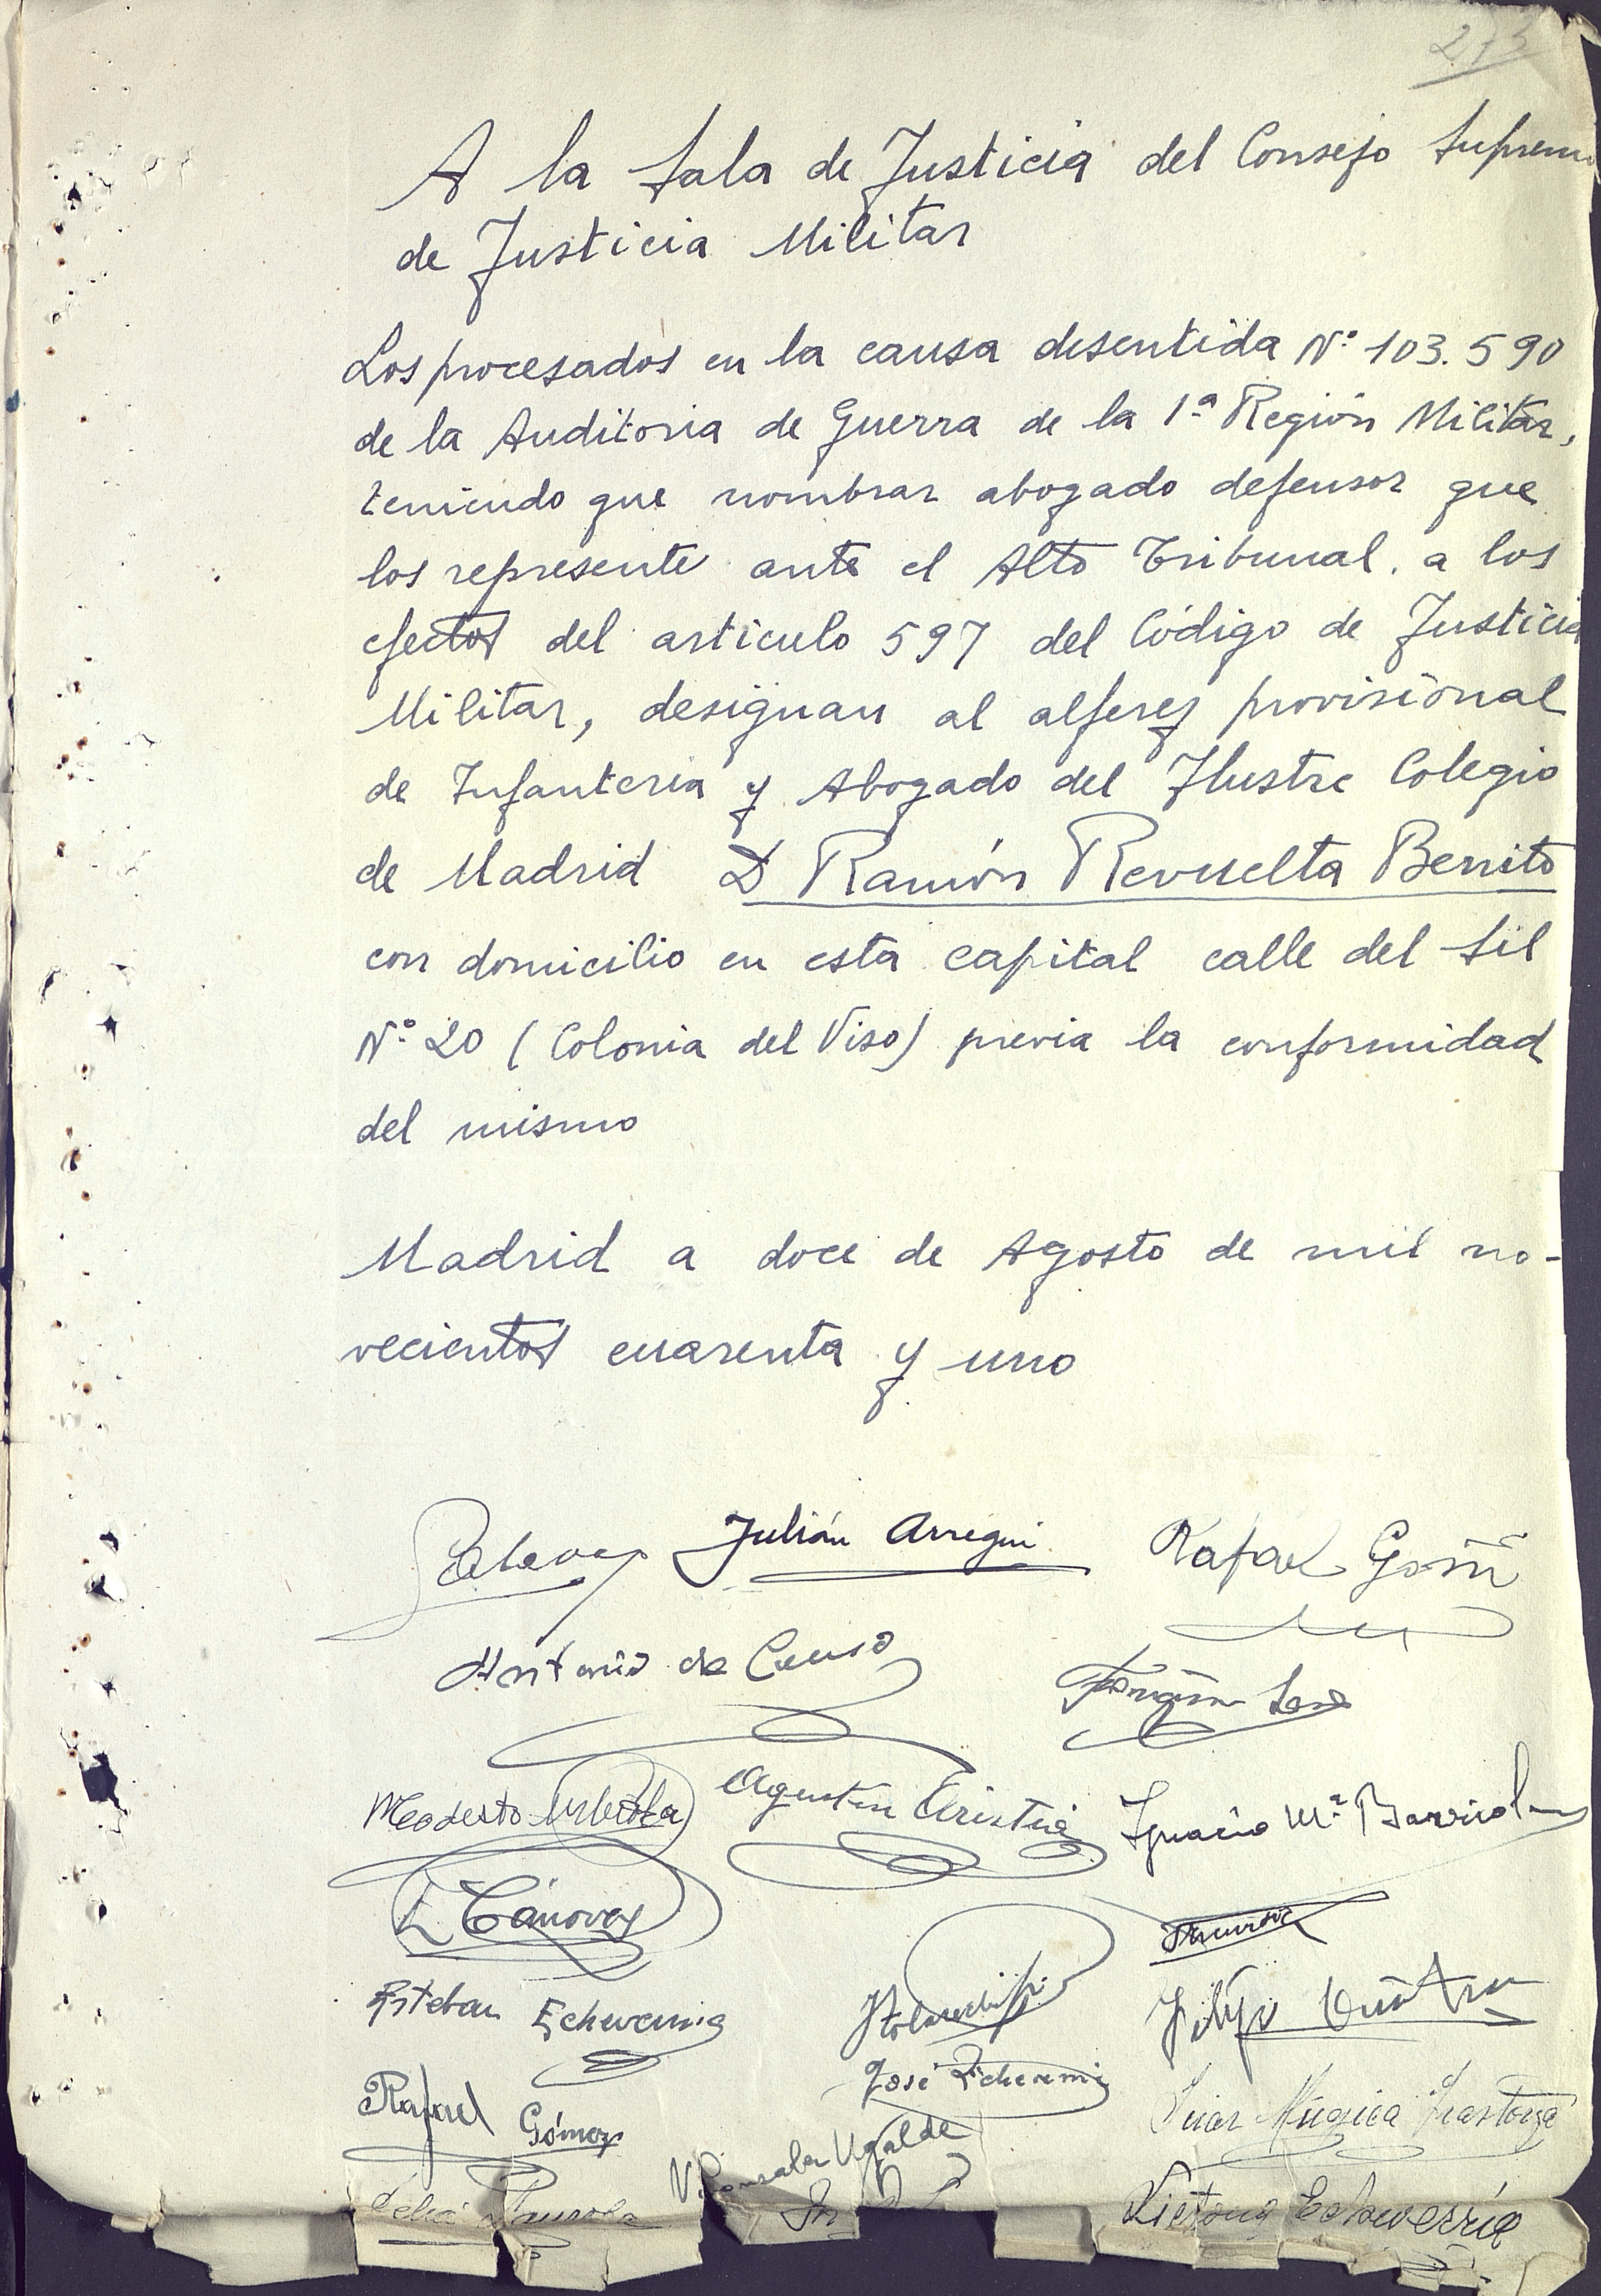 A la Sala de Justicia del Consejo Supremo
de Justicia Militar
Los procesados en la causa desentida Nº 103.590
de la Auditoria de Guerra de la 1ª Región Militar,
teniendo que nombrar abogado defensor que
los represente ante el Alto Tribunal, a los
efectos del articulo 597 del Código de Justicia
Militar, designan al alferez provisional
de Infanteria y Abogado del Ilustre Colegio
de Madrid D Ramón Revuelta Benito
con domicilio en esta capital calle del Sil
Nº 20 (Colonia del Viso) previa la conformidad
del mismo
Madrid a doce de Agosto de mil no-
vecientos cuarenta y uno
Julián Arregui Rafael Goñi
Antonio de Causo
Modesto Urbiola Agustín Ariztia Ignacio Mª Barriola
E Cánovas
Esteban Echeverria Felipe Oñatibia
José Echeverria
Rafael Gómez Múgica
N. Gonzalez Ugalde
Victoria Echeverría